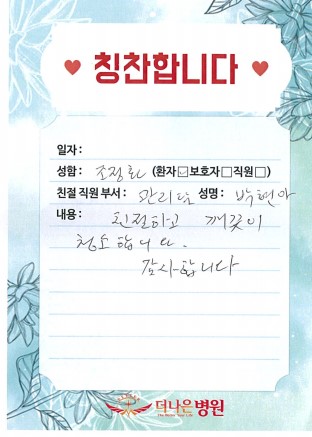 칭찬합니다
일자 :
성함 : 조정환 (환자☑보호자□직원□)
친절 직원 부서 : 관리팀 성명 : 박현아
내용 : 친절하고 깨끗이
청소합니다.
감사합니다
더나은병원